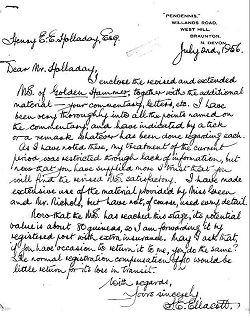 "PENDENNIS,"
WILLANDS ROAD,
WEST HILL,
BRAUNTON,
N. DEVON.
Henry E. E. Holladay, Esq.
July 2nd, 1956.
Dear Mr. Holladay,
I enclose the revised and extended
MS. of Golden Hammer, together with the additional
material — your commentary, letters, etc. I have
been very thoroughly into all the points named on
the commentary, and have indicated by a tick
or a remark whatever has been done regarding each.
As I have noted there, my treatment of the current
period was restricted through lack of information, but
now that you have supplied new I trust that you
will find the revised MS. satisfactory. I have made
extensive use of the material provided by Miss Green
and Mr. Nichols, but have not, of course, used every detail.
Now that the MS. has reached this stage, its potential
value is about 80 guineas, so I am forwarding it by
registered post with extra insurance. May I ask that,
if you have occasion to return it to me, you do the same?
The normal registration compensation of £10 would be
little return for its loss in transit.
With regards,
Yours sincerely,